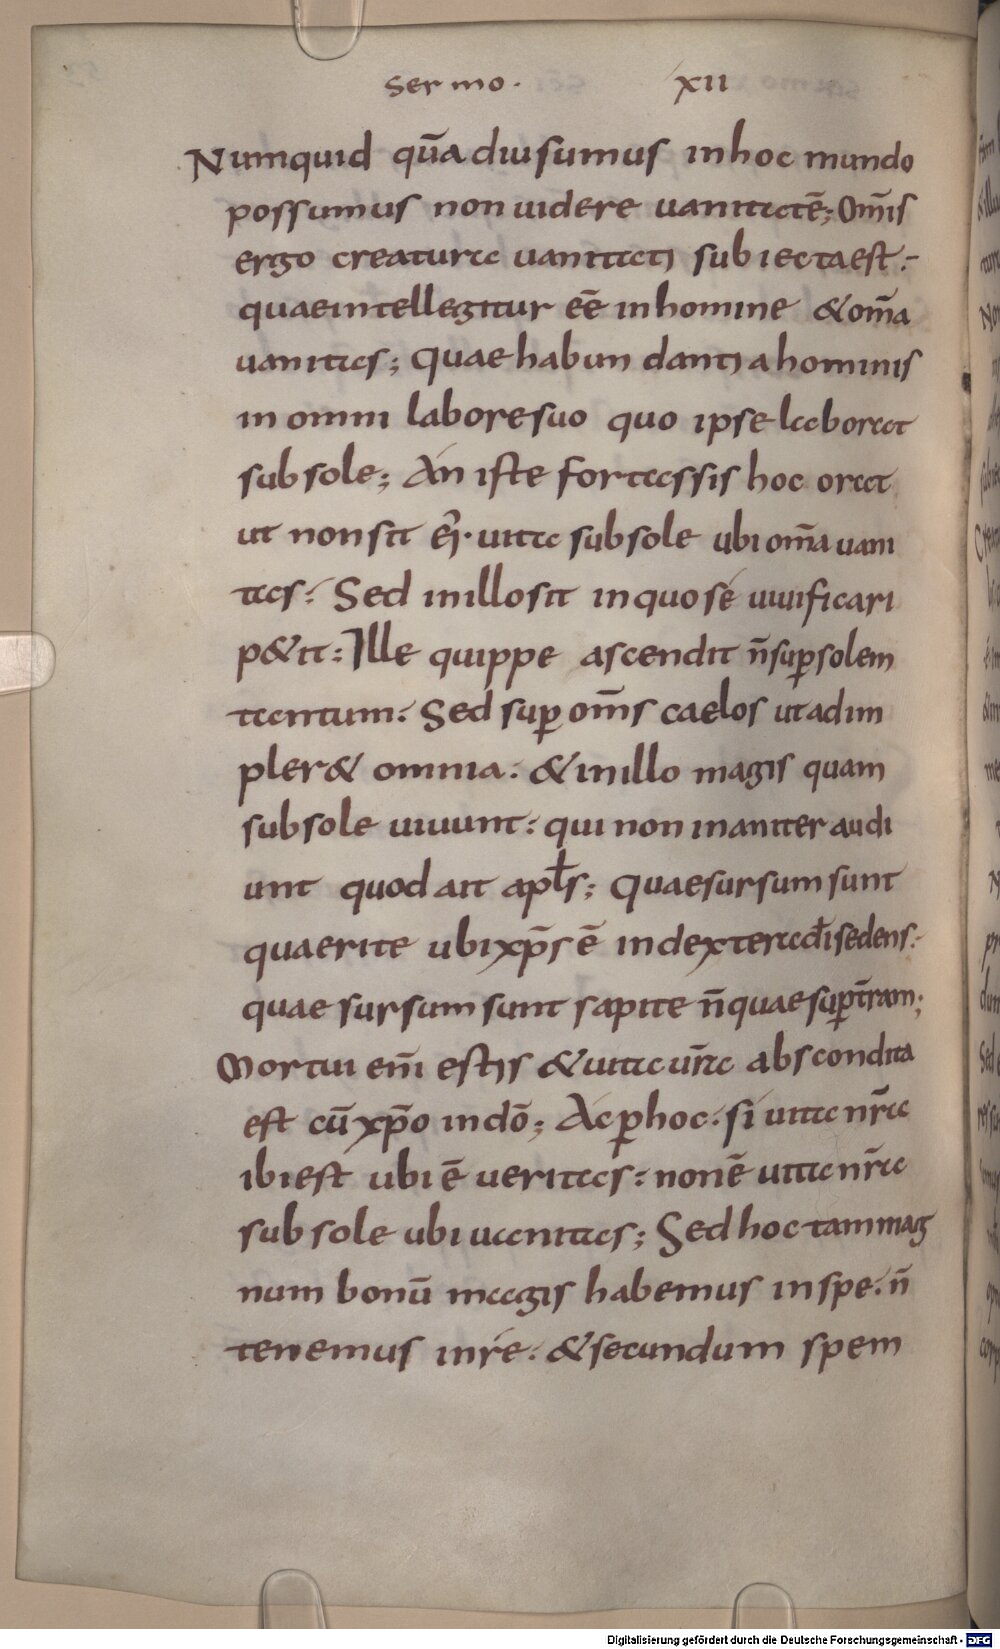 Sermo. XII
Numquid quā diu sumus in hoc mundo
possumus non uidere uanitatē; Om̄is
ergo creatura uanitati subiecta est:
quae intellegitur eē in homine & om̄a
uanitas; Quae habundantia hominis
in omni labore suo quo ipse laborat
sub sole; An iste fortassis hoc orat
ut non sit ei· uita sub sole ubi om̄a uani
tas: Sed in illo sit in quo sé uiuificari
p&it: Ille quippe ascendit n̄ sup solem
tantum: Sed sup om̄s caelos ut adim
pler& omnia: & in illo magis quam
sub sole uiuunt: qui non inaniter audi
unt quod ait apłs; Quae sursum sunt
quaerite ubi xp̄s ē in dextera dī sedens:
quae sursum sunt sapite n̄ quae sup t̄ram;
Mortui eni̅ estis & uita ur̄a abscondita
est cū xp̄o in dō; Ac p hoc: si uita nr̄a
ibi est ubi ē ueritas: non ē uita nr̄a
sub sole ubi uanitas; Sed hoc tam mag
num bonū magis habemus in spe: n̄
tenemus in ré: & secundum spem
Digitalisierung gefördert durch die Deutsche Forschungsgemeinschaft - DFG